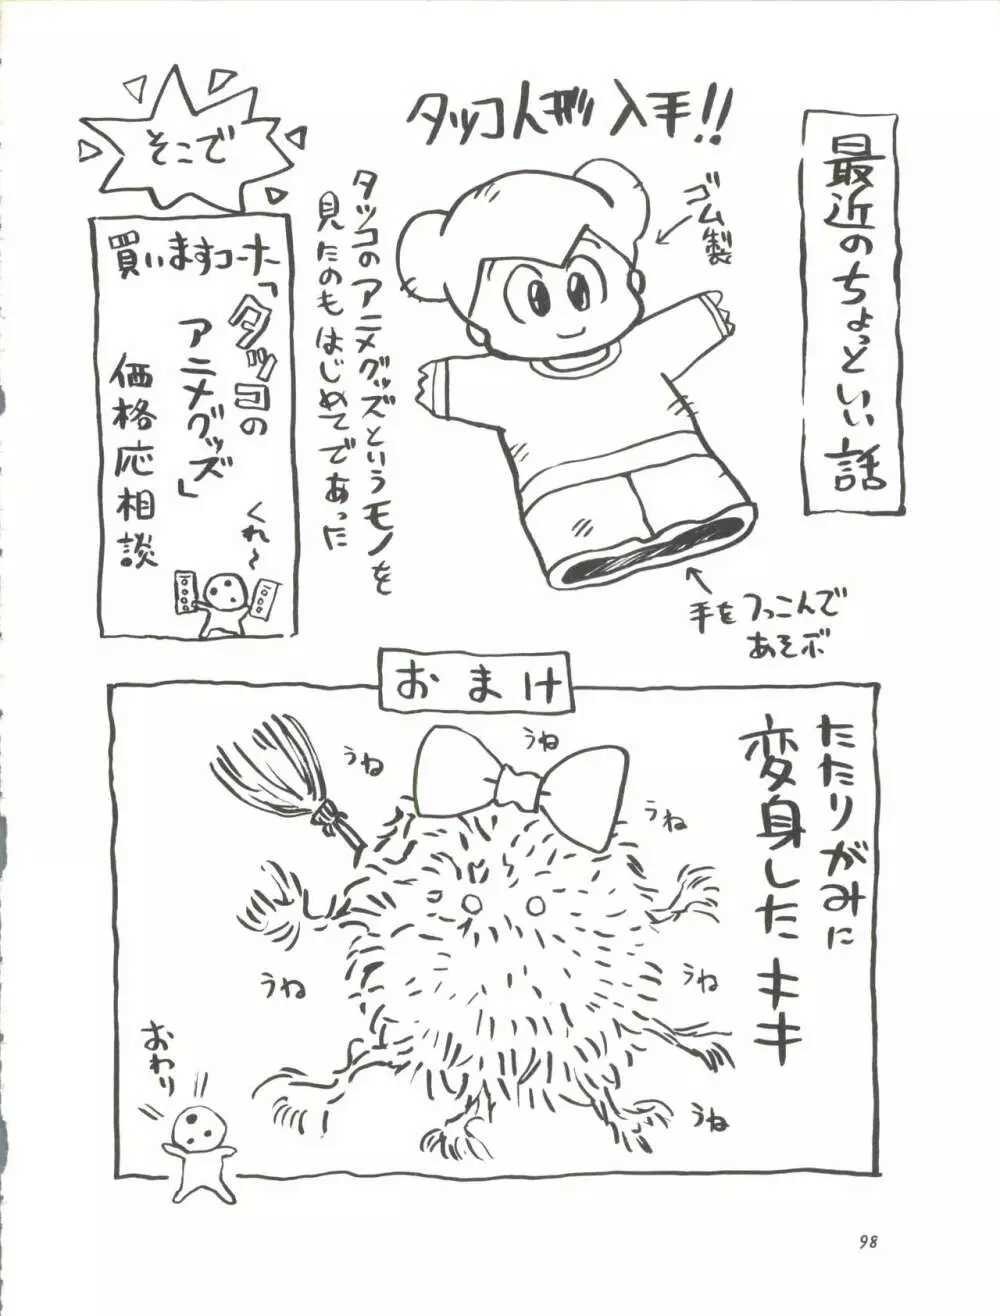 最近のちょっといい話
タッコ人形入手!!
ゴム製
タッコのアニメグッズというモノを
見たのもはじめてであった
手をつっこんで
あそぶ
そこで
買いますコーナー
「タッコの
アニメグッズ」
価格応相談
くれ〜
おまけ
たたりがみに
変身したキキ
うね
うね
うね
うね
うね
うね
おわり
98